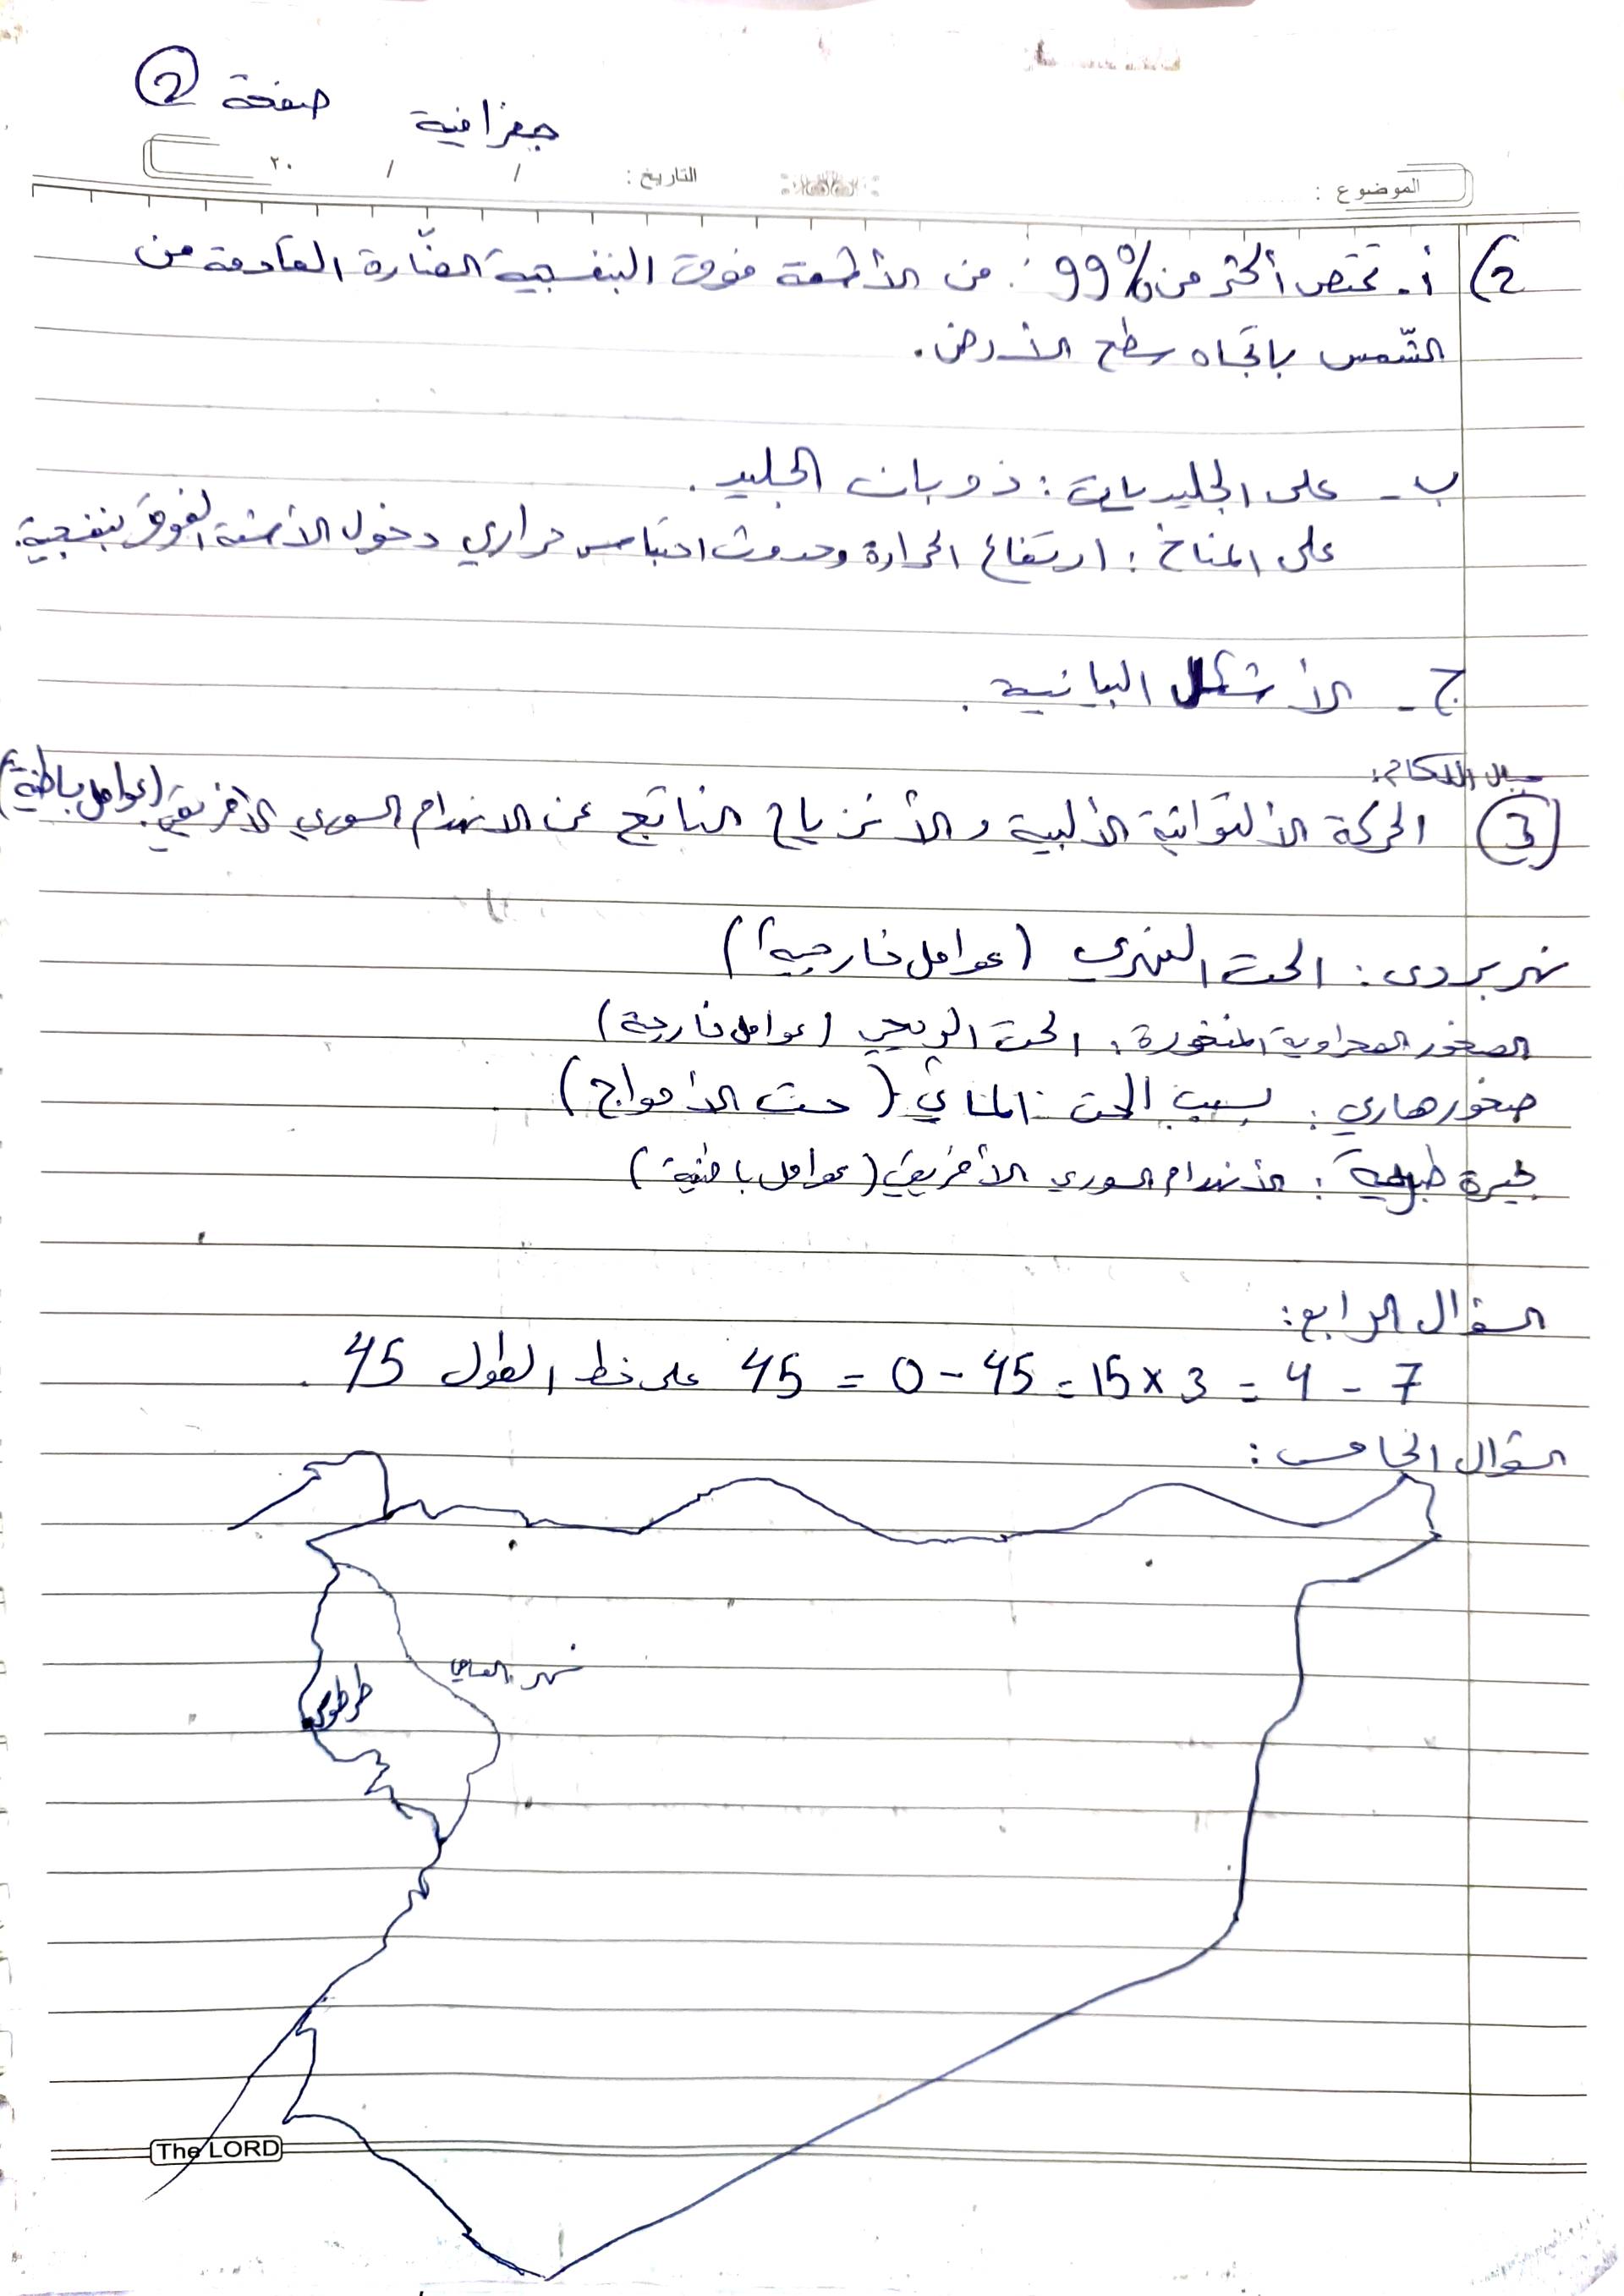 جغرافية صفحة 2
الموضوع : التاريخ : / / ٢٠
2) أ- تمتص أكثر من 99% من الأشعة فوق البنفسجية الضّارة القادمة من
الشّمس باتجاه سطح الأرض.
ب- على الجليديات : ذوبان الجليد.
على المناخ : ارتفاع الحرارة وحدوث احتباس حراري دخول الأشعة الفوق بنفسجية.
ج- الأشكال البيانية.
جبال اللكام:
3) الحركة الألتوائية الألبية والأنزياح الناتج عن الانهدام السوري الأفريقي (عوامل باطنية)
نهر بردى : الحت النهري (عوامل خارجية)
الصخور الصحراوية المنخورة : الحت الريحي (عوامل خارجية)
صخور هاري : بسبب الحت المائي (حت الأمواج)
بحيرة طبرية : الأنهدام السوري الأفريقي (عوامل باطنية)
السؤال الرابع :
7 - 4 = 3 × 15 = 45 - 0 = 45 على خط الطول 45 .
السؤال الخامس :
نهر العاصي
طرطوس
The LORD